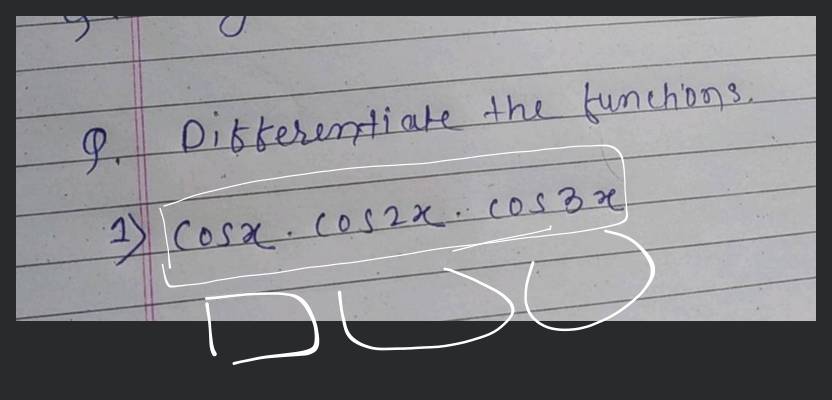 Q. Differentiate the functions.
1) cosx . cos2x . cos3x